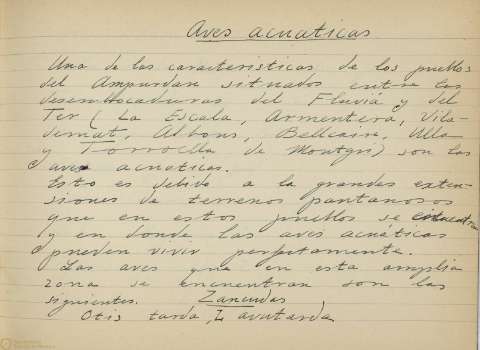 Aves acuaticas
Una de las caracteristicas de los pueblos
del Ampurdan situados entre las
desembocaduras del Fluvia y del
Ter (La Escala, Armentera, Vila-
demat, Albons, Bellcaire, Ulla
y Torroella de Montgri) son las
aves acuaticas.
Esto es debido a la grandes exten-
siones de terrenos pantanosos
que en estos pueblos se encuentran
y en donde las aves acuáticas
pueden vivir perfectamente.
Las aves que en esta amplia
zona se encuentran son las
siguientes. Zancudas
Otis tarda, L avutarda